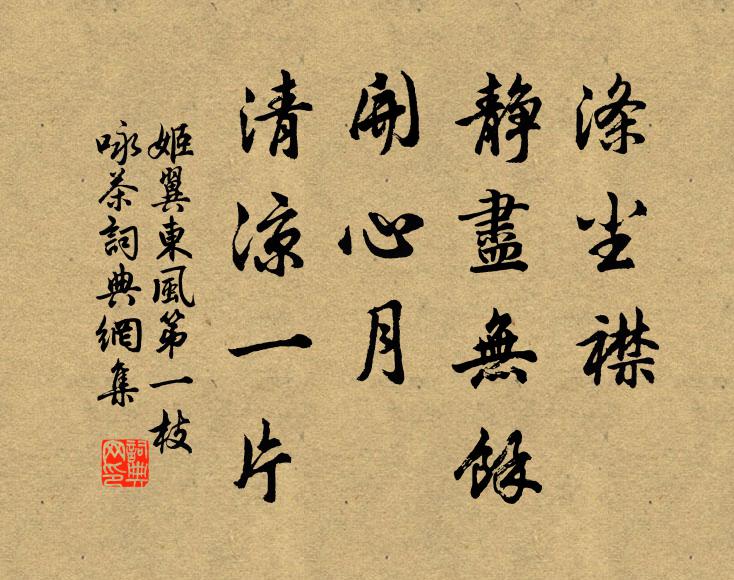 滌尘襟
静盡無餘
開心月
清凉一片
姬翼東風第一枝
咏茶詞典網集
詞典网印